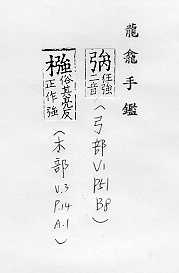 龍龕手鑑
任強
二音
(弓部 V.1 P51 B8)
俗其亮反
正作強
(木部 V.3 P.14 A.1)